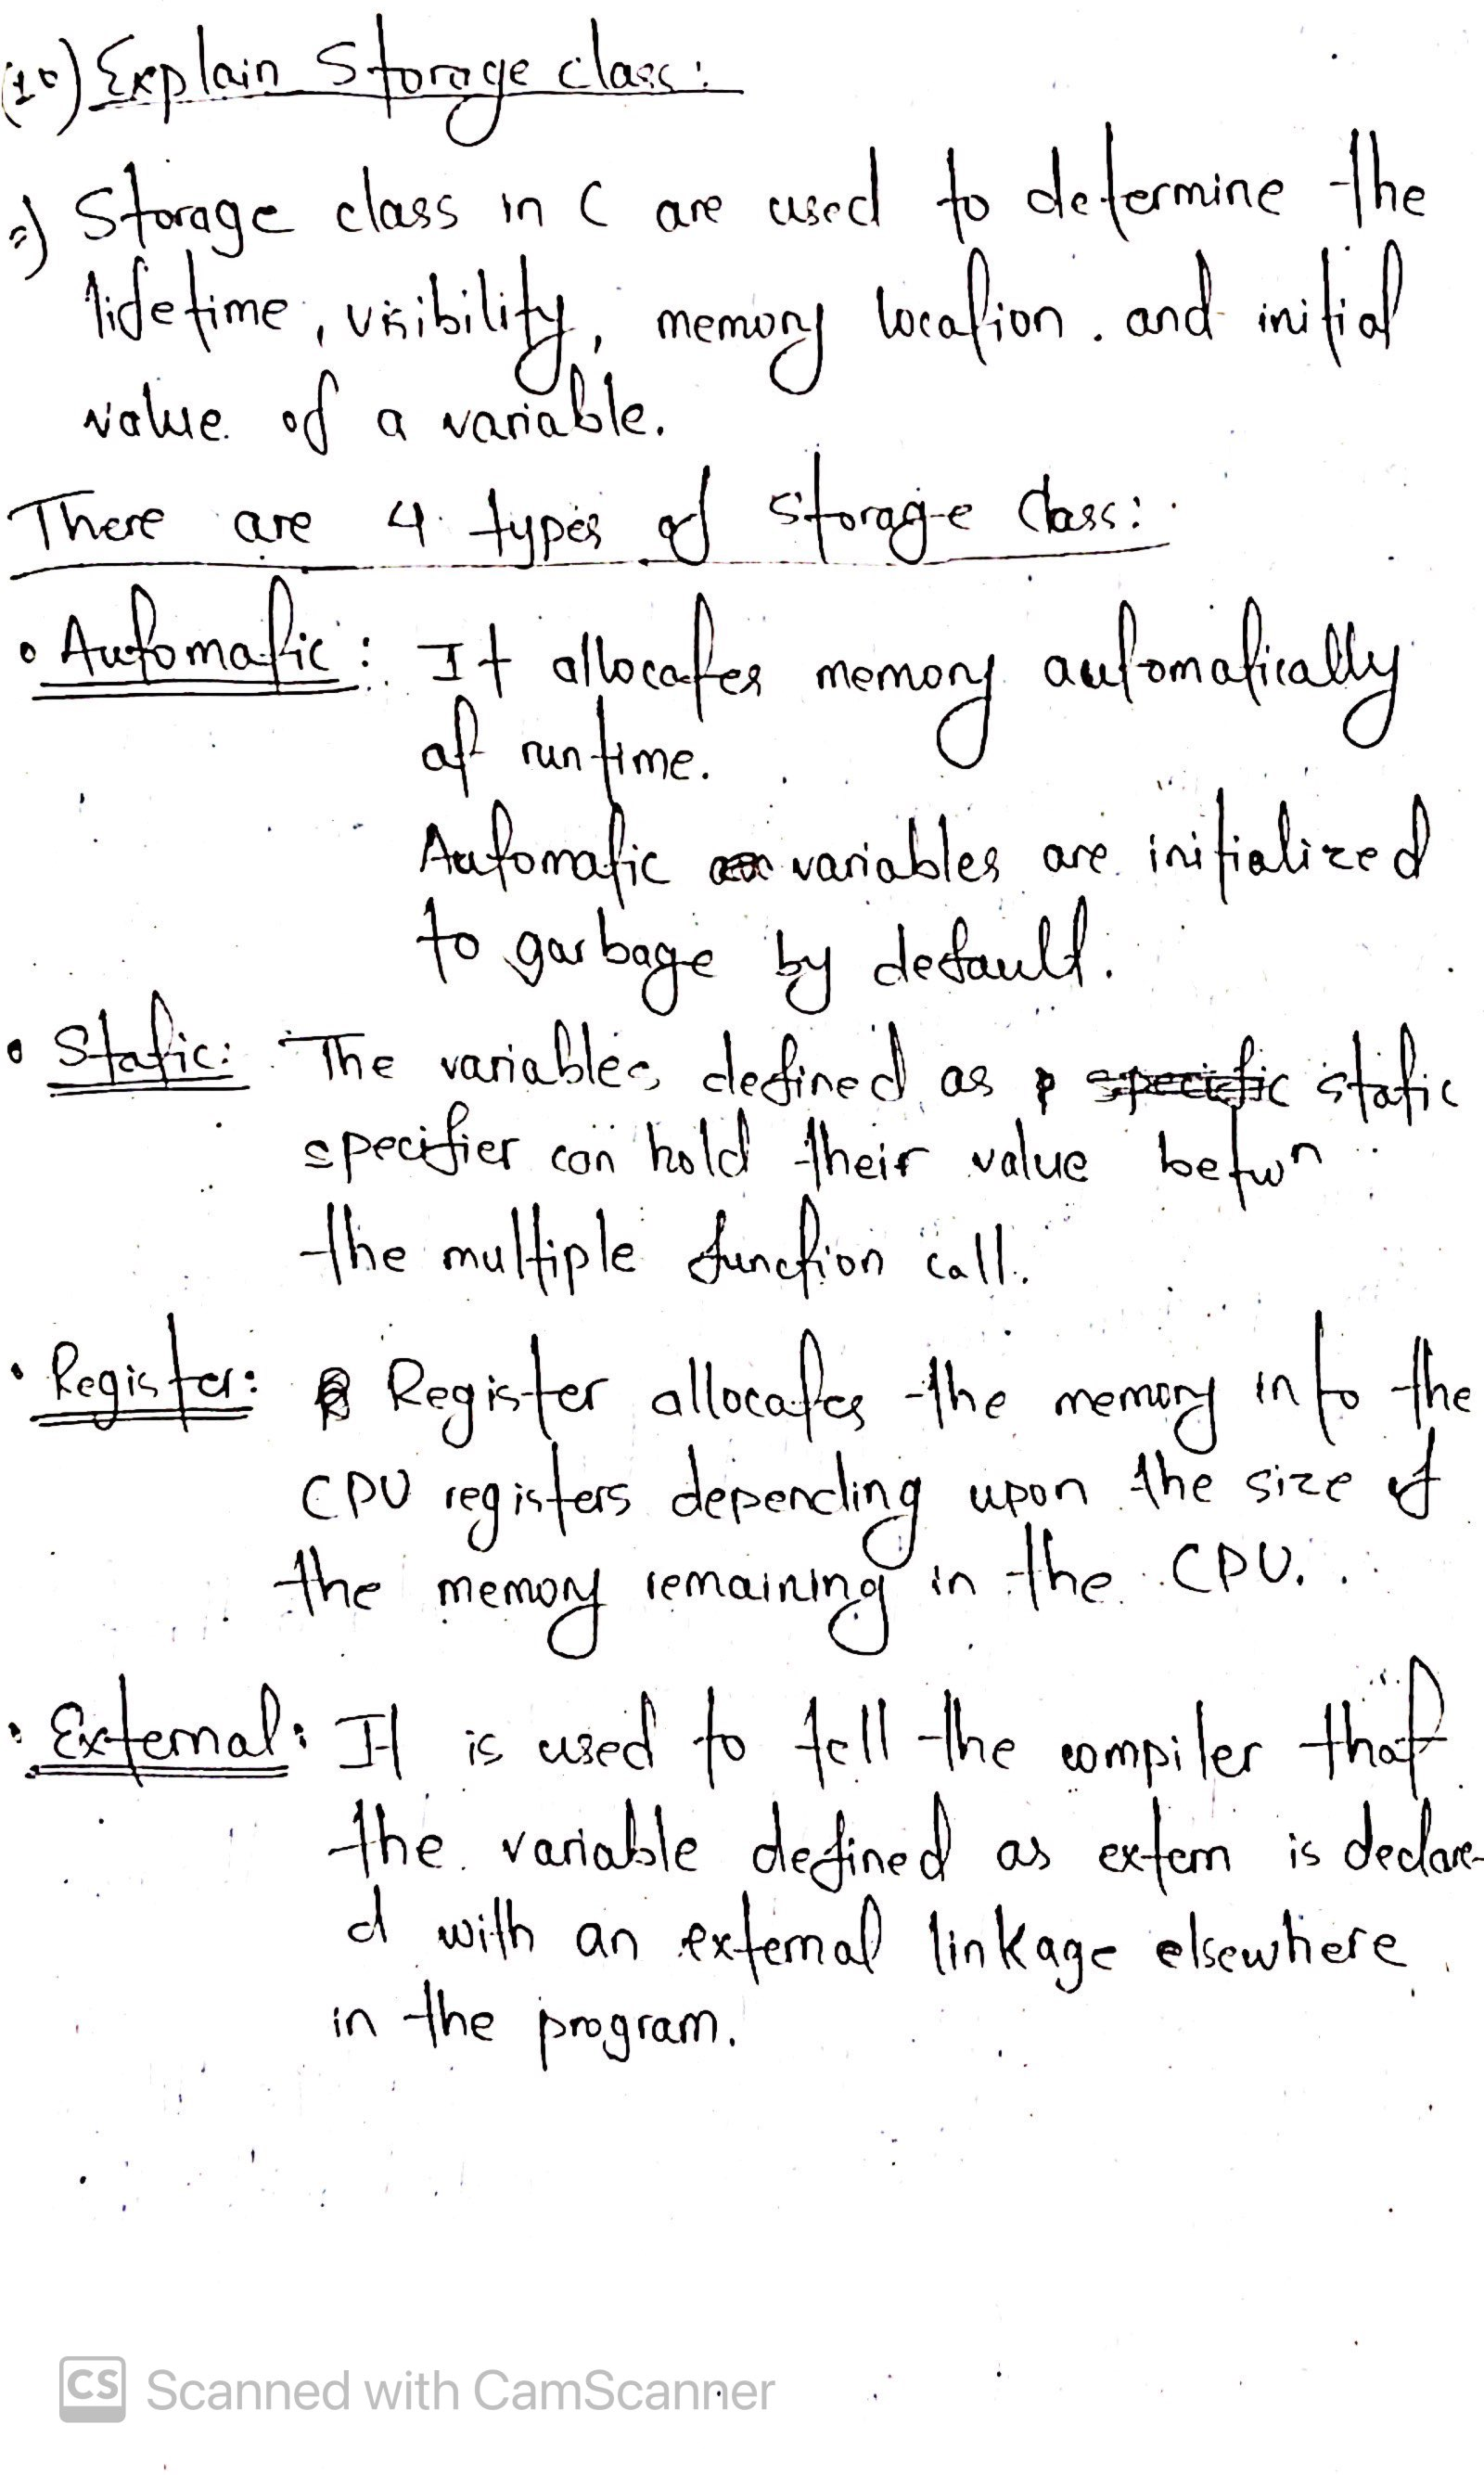 (10) Explain Storage class:
=) Storage class in C are used to determine the
lifetime, visibility, memory location. and initial
value of a variable.
There are 4 types of storage class:
• Automatic: It allocates memory automatically
at runtime.
Automatic variables are initialized
to garbage by default.
• Static: The variables defined as specific static
specifier can hold their value betwn
the multiple function call.
• Register: Register allocates the memory into the
CPU registers depending upon the size of
the memory remaining in the CPU.
• External: It is used to tell the compiler that
the variable defined as extern is declare-
d with an external linkage elsewhere
in the program.
CS Scanned with CamScanner